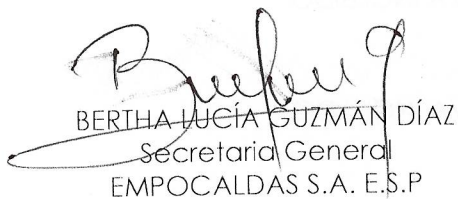 BERTHA LUCÍA GUZMÁN DÍAZ
Secretaria General
EMPOCALDAS S.A. E.S.P